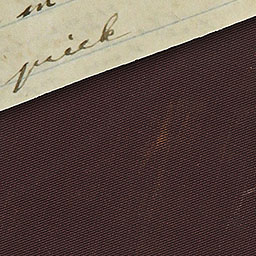 in
quick